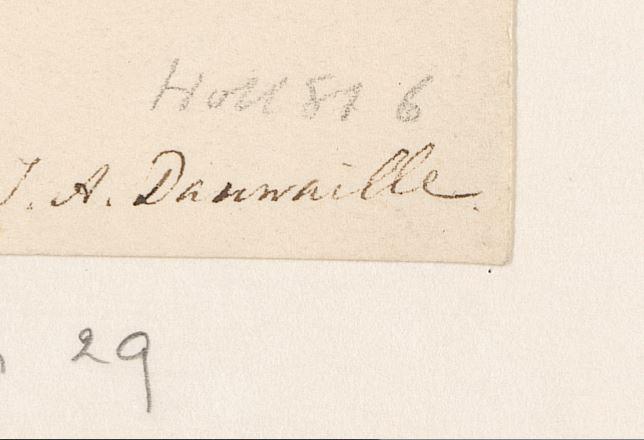 Holl 81 6
J. A. Dauwaille.
29